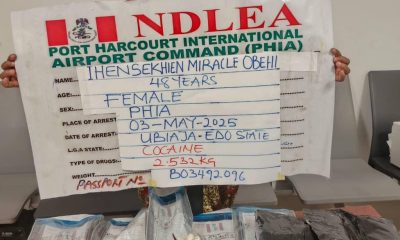 NDLEA
PORT HARCOURT INTERNATIONAL
AIRPORT COMMAND (PHIA)
NAME: IHENSEKHIEN MIRACLE OBEHI
AGE: 48 YEARS
SEX: FEMALE
PLACE OF ARREST PHIA
DATE OF ARREST 03-MAY-2025
L.G.A STATE: UBIAJA-EDO STATE
TYPE OF DRUGS: COCAINE
2.532KG
PASSPORT No B03492096